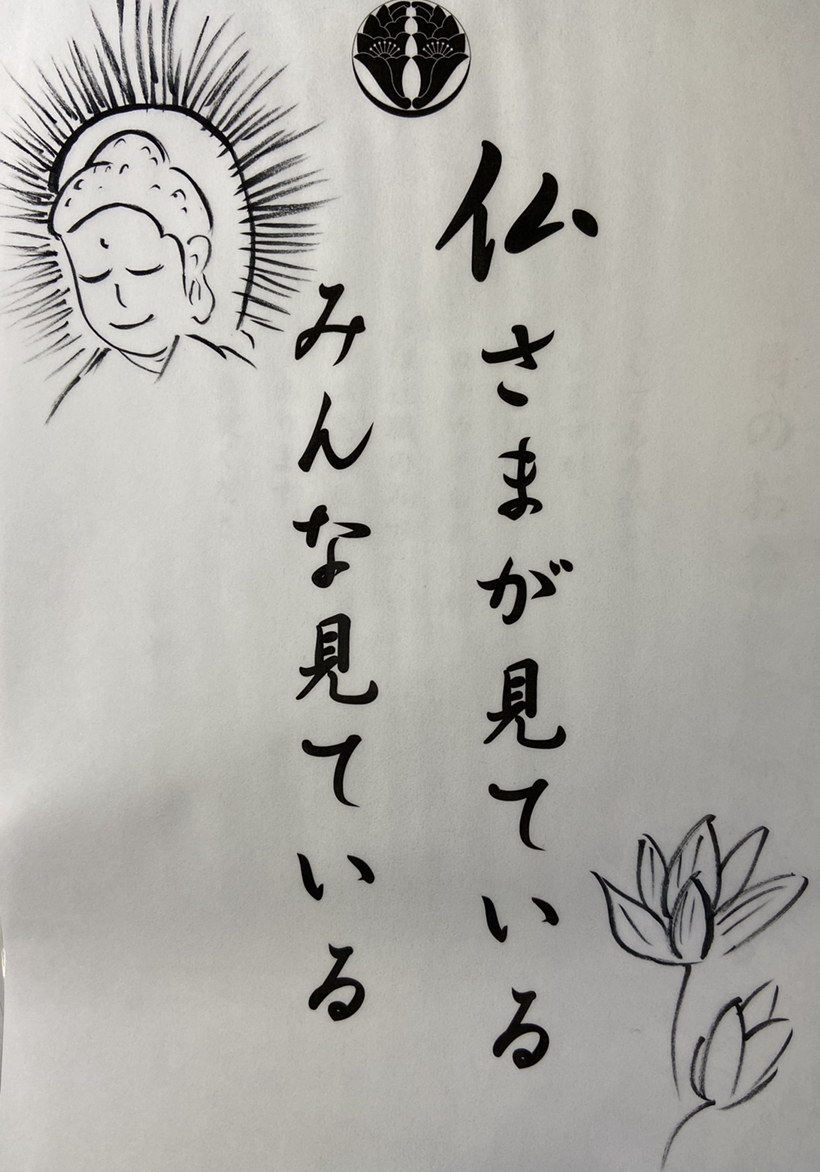 仏さまが見ている
みんな見ている